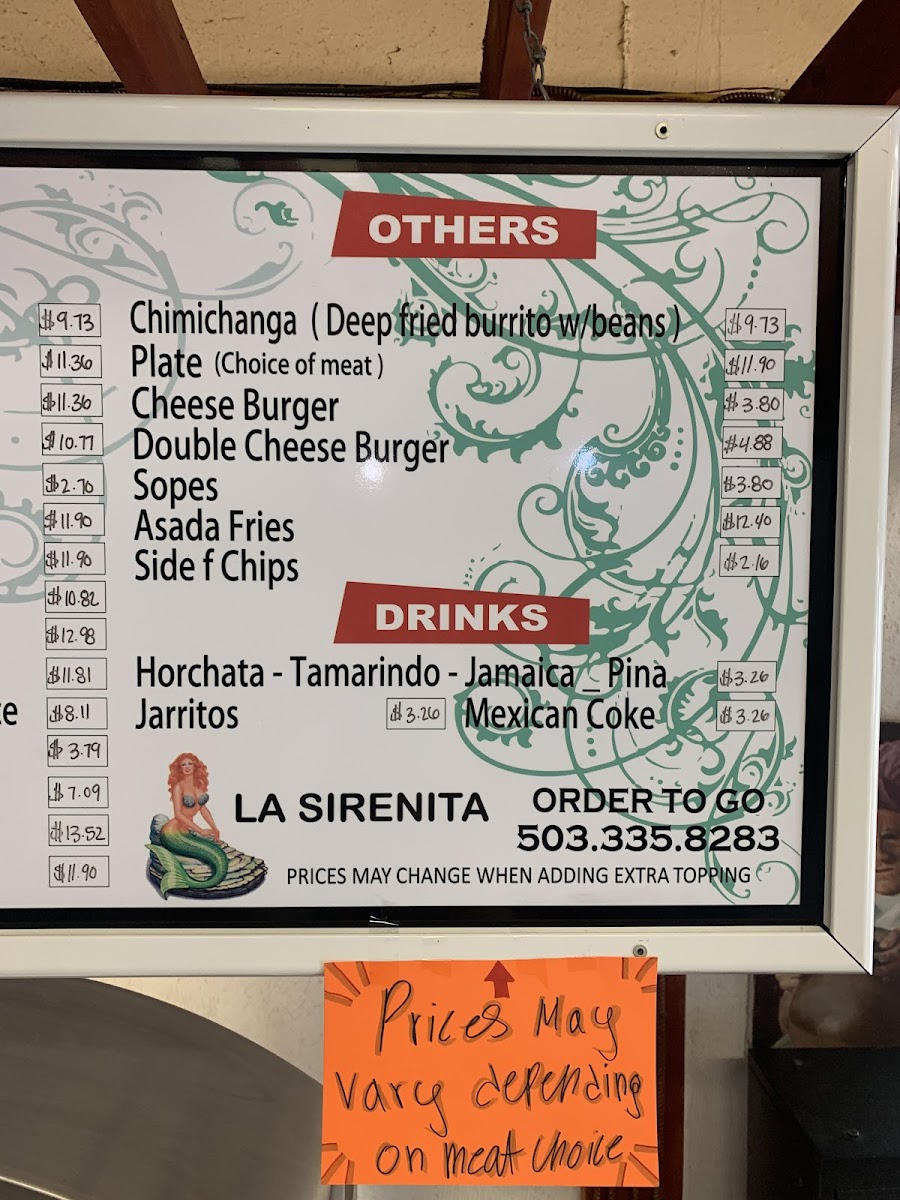 OTHERS
$9.73 Chimichanga ( Deep fried burrito w/beans ) $9.73
$11.36 Plate (Choice of meat ) $11.90
$11.36 Cheese Burger $3.80
$10.77 Double Cheese Burger $4.88
$2.70 Sopes $3.80
$11.90 Asada Fries $12.40
$11.90 Side f Chips $2.16
$10.82
DRINKS
$12.98
$11.81 Horchata - Tamarindo - Jamaica _ Pina $3.26
$8.11 Jarritos $3.26 Mexican Coke $3.26
$3.79
$7.09
LA SIRENITA ORDER TO GO
$13.52 503.335.8283
$11.90 PRICES MAY CHANGE WHEN ADDING EXTRA TOPPING
Prices May
vary depending
on meat choice